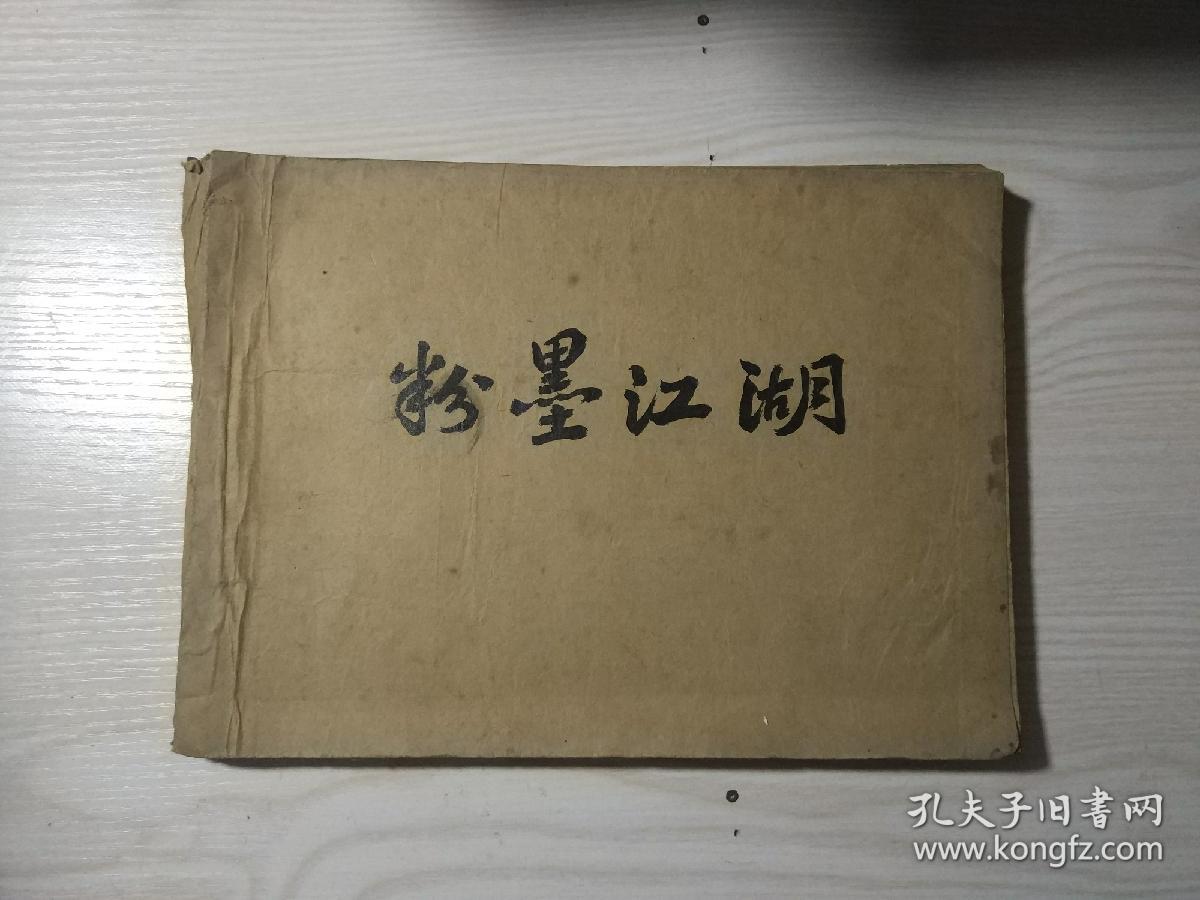 粉墨江湖
孔夫子旧書网
www.kongfz.com